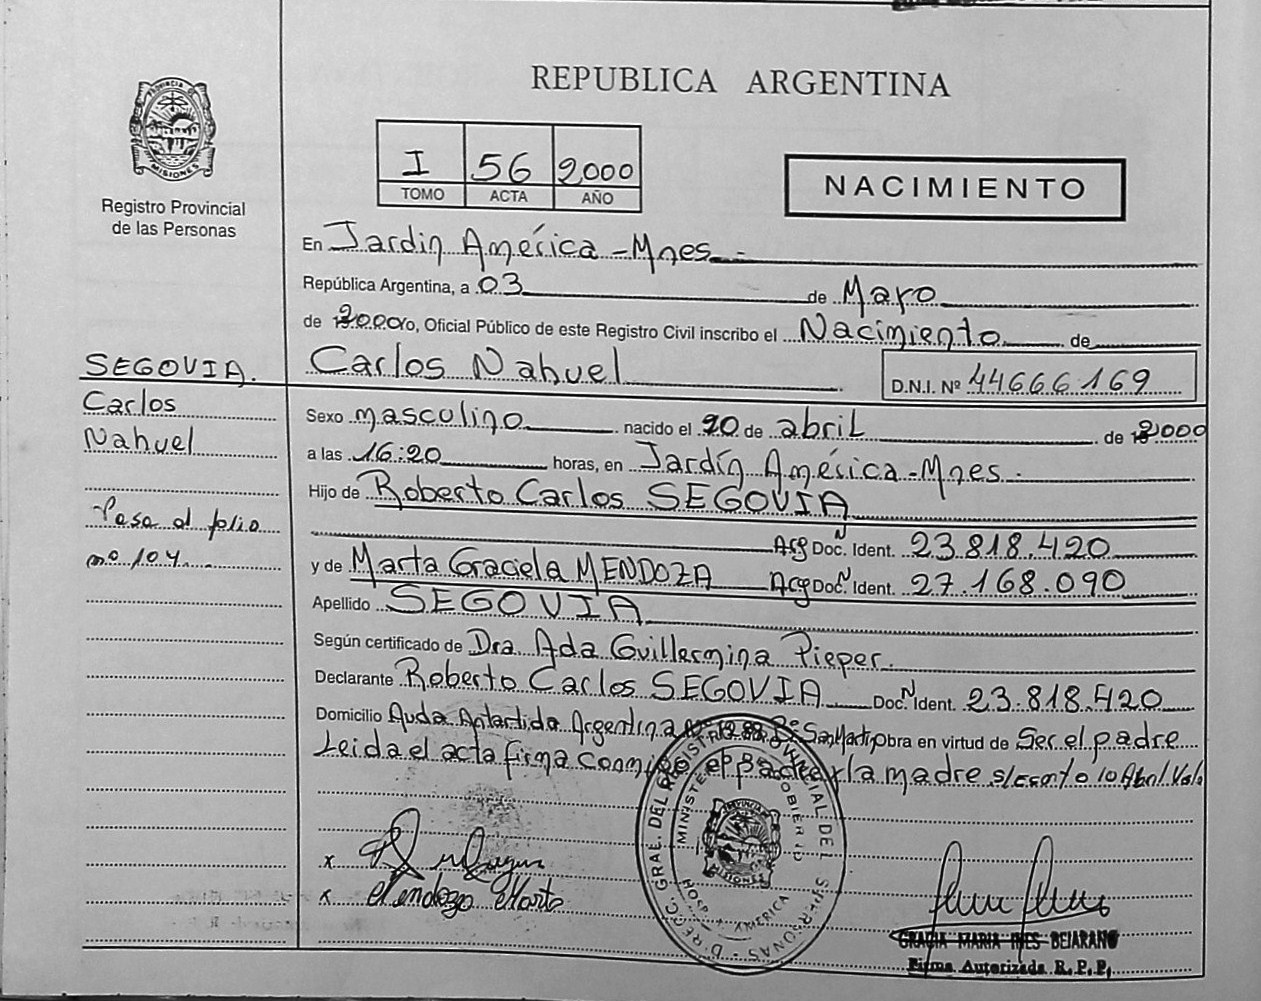 REPUBLICA ARGENTINA
PROVINCIA DE MISIONES
Registro Provincial
de las Personas
I 56 2000
TOMO ACTA AÑO
NACIMIENTO
En Jardin América - Mnes -
República Argentina, a 03 de Mayo
de 2000, Oficial Público de este Registro Civil inscribo el Nacimiento de
Carlos Nahuel D.N.I. Nº 44666169
SEGOVIA.
Carlos
Nahuel
Pasa al folio
nº 104
Sexo masculino nacido el 20 de abril de 2000
a las 16:20 horas, en Jardín América - Mnes -
Hijo de Roberto Carlos SEGOVIA
Arg Doc. N Ident. 23.818.420
y de Marta Graciela MENDOZA Arg Doc. N Ident. 27.168.090
Apellido SEGOVIA
Según certificado de Dra Ada Guillermina Pieper.
Declarante Roberto Carlos SEGOVIA Doc. N Ident. 23.818.420
Domicilio Avda Antartida Argentina Bº San Martin obra en virtud de Ser el padre
Leida el acta firma conmigo el padre y la madre s/escrito 10 Abril Vale
x
x Mendoza Marta
REG. GRAL. DEL REGISTRO PROVINCIAL DE LAS PERSONAS
MINISTERIO DE GOBIERNO
HOSP. AMERICA
MISIONES
GRACIA MARIA INES BEJARANO
Firma Autorizada R.P.P.